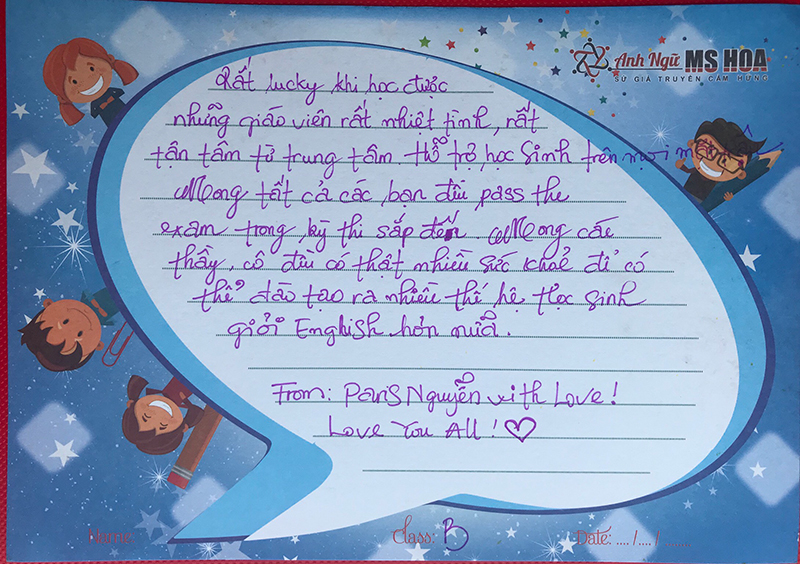 Anh Ngữ MS HOA
SỨ GIẢ TRUYỀN CẢM HỨNG
Rất lucky khi học được
những giáo viên rất nhiệt tình, rất
tận tâm từ trung tâm hỗ trợ học sinh trên mọi
Mong tất cả các bạn đều pass the
exam trong kỳ thi sắp đến. Mong các
thầy, cô đều có thật nhiều sức khoẻ để có
thể đào tạo ra nhiều thế hệ học sinh
giỏi English hơn nữa.
From: Paris Nguyễn with Love!
Love You All! ♡
Name:
Class: B
Date: ..../..../ ......